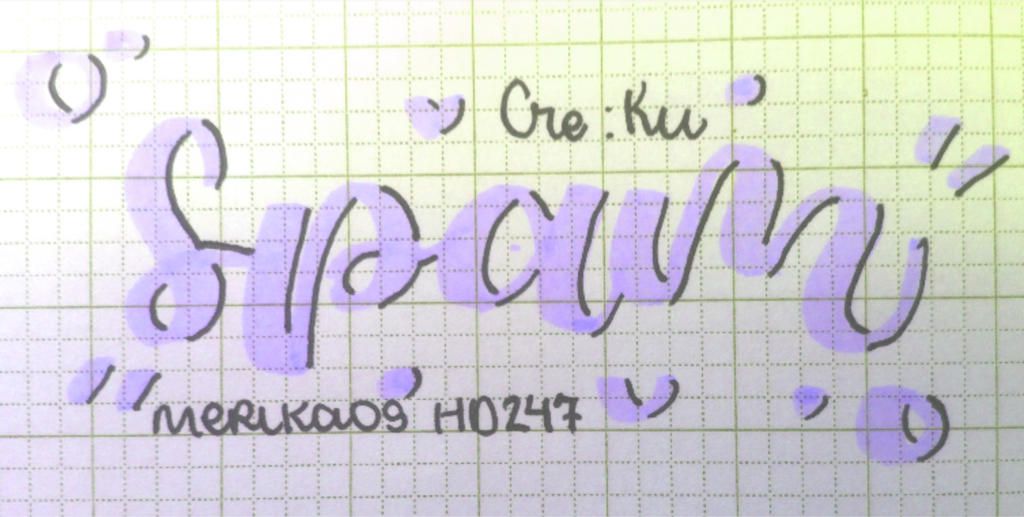 Cre : Ku
Spam
MERIKA09 HD247